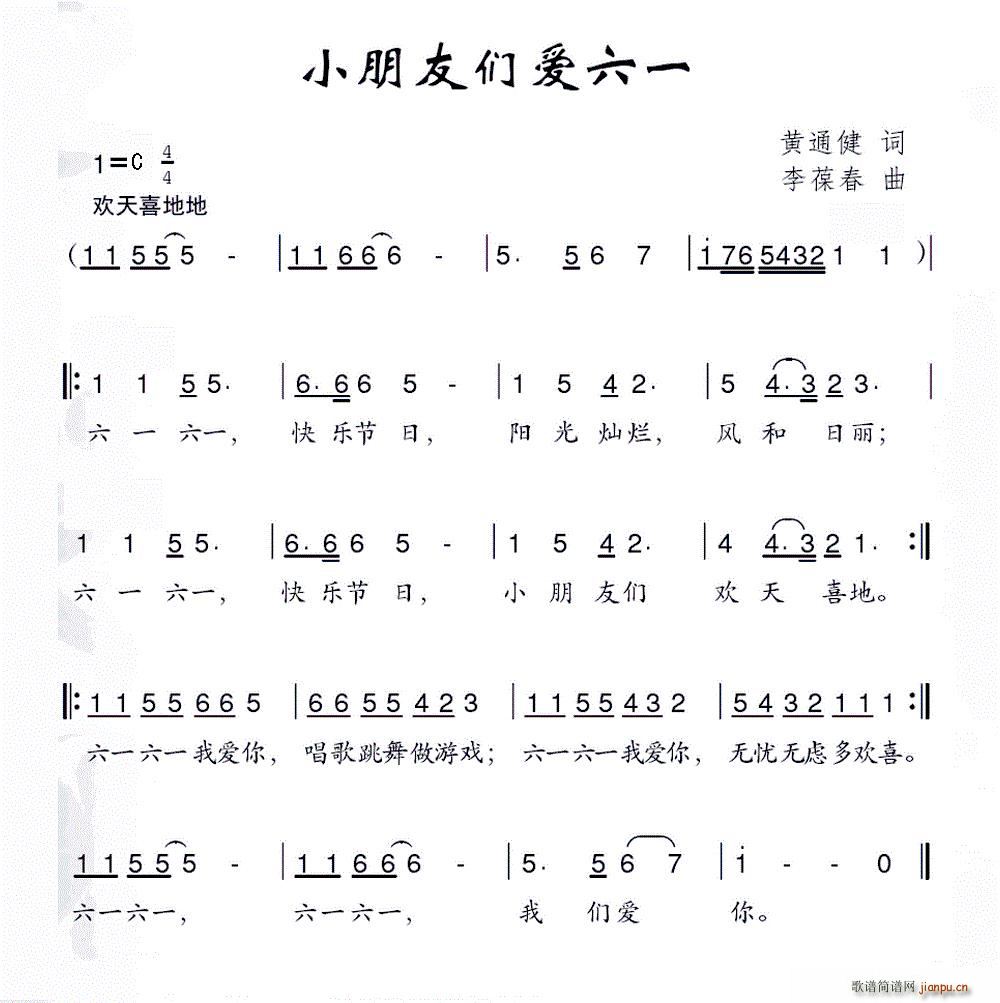 小朋友们爱六一
黄通健 词
1=C 4/4
李葆春 曲
欢天喜地地
(1 1 5 5 5 - | 1 1 6 6 6 - | 5. 5 6 7 | i 76 5432 1 1 )|
‖: 1 1 5 5. | 6. 6 6 5 - | 1 5 4 2. | 5 4. 3 2 3. |
六 一 六一, 快乐节 日, 阳 光 灿烂, 风和 日丽;
1 1 5 5. | 6. 6 6 5 - | 1 5 4 2. | 4 4. 3 2 1. :‖
六 一 六一, 快乐节 日, 小 朋 友们 欢 天 喜地。
‖: 1 1 5 5 6 6 5 | 6 6 5 5 4 2 3 | 1 1 5 5 4 3 2 | 5 4 3 2 1 1 1 :‖
六一六一我爱你, 唱歌跳舞做游戏; 六一六一我爱你, 无忧无虑多欢喜。
1 1 5 5 5 - | 1 1 6 6 6 - | 5. 5 6 7 | i - - 0 ‖
六一六一, 六一六一, 我 们爱 你。
歌谱简谱网 jianpu.cn